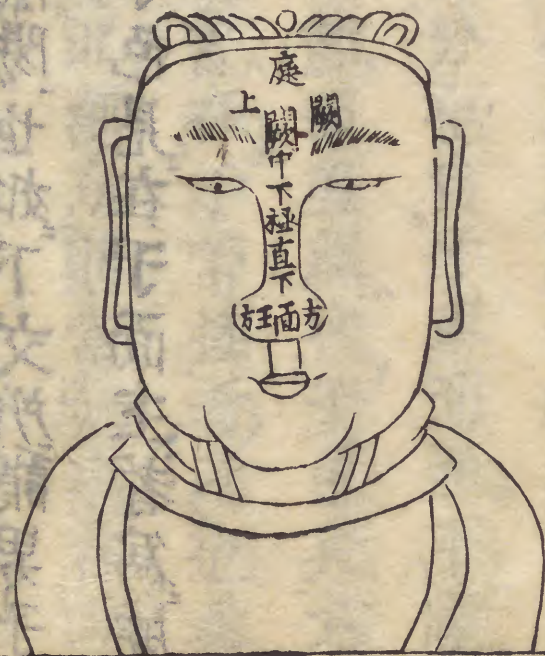 庭
闕上
闕中
下極
直下
方面王方